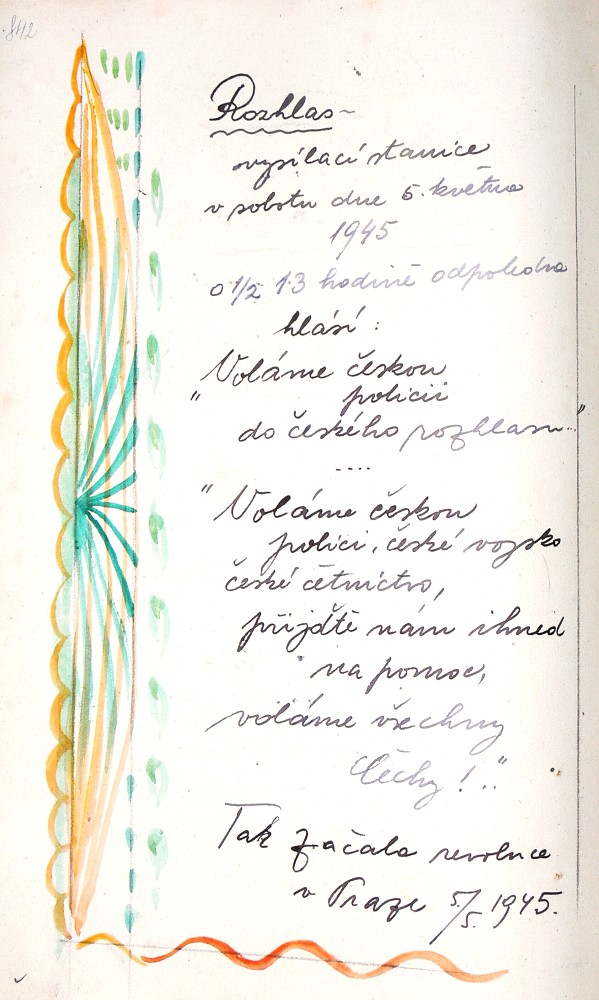 842
Rozhlas-
vysílací stanice
v sobotu dne 5. května
1945
o 1/2 13 hodině odpoledne
hlásí:
"Voláme českou
policii
do českého rozhlasu..."
....
"Voláme českou
polici, české vojsko
české četnictvo,
přijďtě nám ihned
na pomoc,
voláme všechny
Čechy!.."
Tak začala revoluce
v Praze 5/5. 1945.